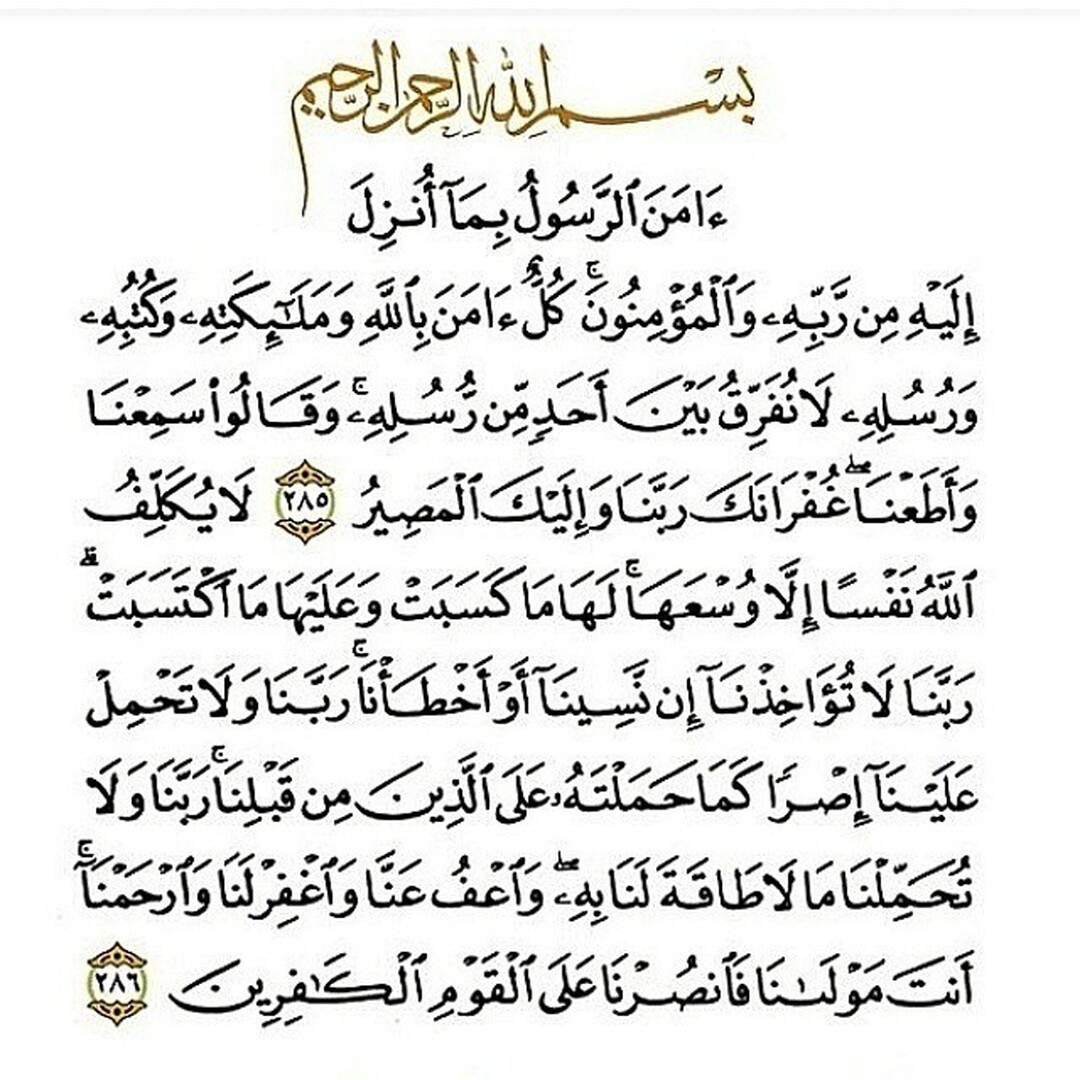 بِسْمِ ٱللَّهِ ٱلرَّحْمَٰنِ ٱلرَّحِيمِ
ءَامَنَ ٱلرَّسُولُ بِمَآ أُنزِلَ
إِلَيْهِ مِن رَّبِّهِۦ وَٱلْمُؤْمِنُونَ ۚ كُلٌّ ءَامَنَ بِٱللَّهِ وَمَلَٰٓئِكَتِهِۦ وَكُتُبِهِۦ
وَرُسُلِهِۦ لَا نُفَرِّقُ بَيْنَ أَحَدٍ مِّن رُّسُلِهِۦ ۚ وَقَالُوا۟ سَمِعْنَا
وَأَطَعْنَا ۖ غُفْرَانَكَ رَبَّنَا وَإِلَيْكَ ٱلْمَصِيرُ ٢٨٥ لَا يُكَلِّفُ
ٱللَّهُ نَفْسًا إِلَّا وُسْعَهَا ۚ لَهَا مَا كَسَبَتْ وَعَلَيْهَا مَا ٱكْتَسَبَتْ ۗ
رَبَّنَا لَا تُؤَاخِذْنَآ إِن نَّسِينَآ أَوْ أَخْطَأْنَا ۚ رَبَّنَا وَلَا تَحْمِلْ
عَلَيْنَآ إِصْرًا كَمَا حَمَلْتَهُۥ عَلَى ٱلَّذِينَ مِن قَبْلِنَا ۚ رَبَّنَا وَلَا
تُحَمِّلْنَا مَا لَا طَاقَةَ لَنَا بِهِۦ ۖ وَٱعْفُ عَنَّا وَٱغْفِرْ لَنَا وَٱرْحَمْنَآ ۚ
أَنتَ مَوْلَىٰنَا فَٱنصُرْنَا عَلَى ٱلْقَوْمِ ٱلْكَٰفِرِينَ ٢٨٦